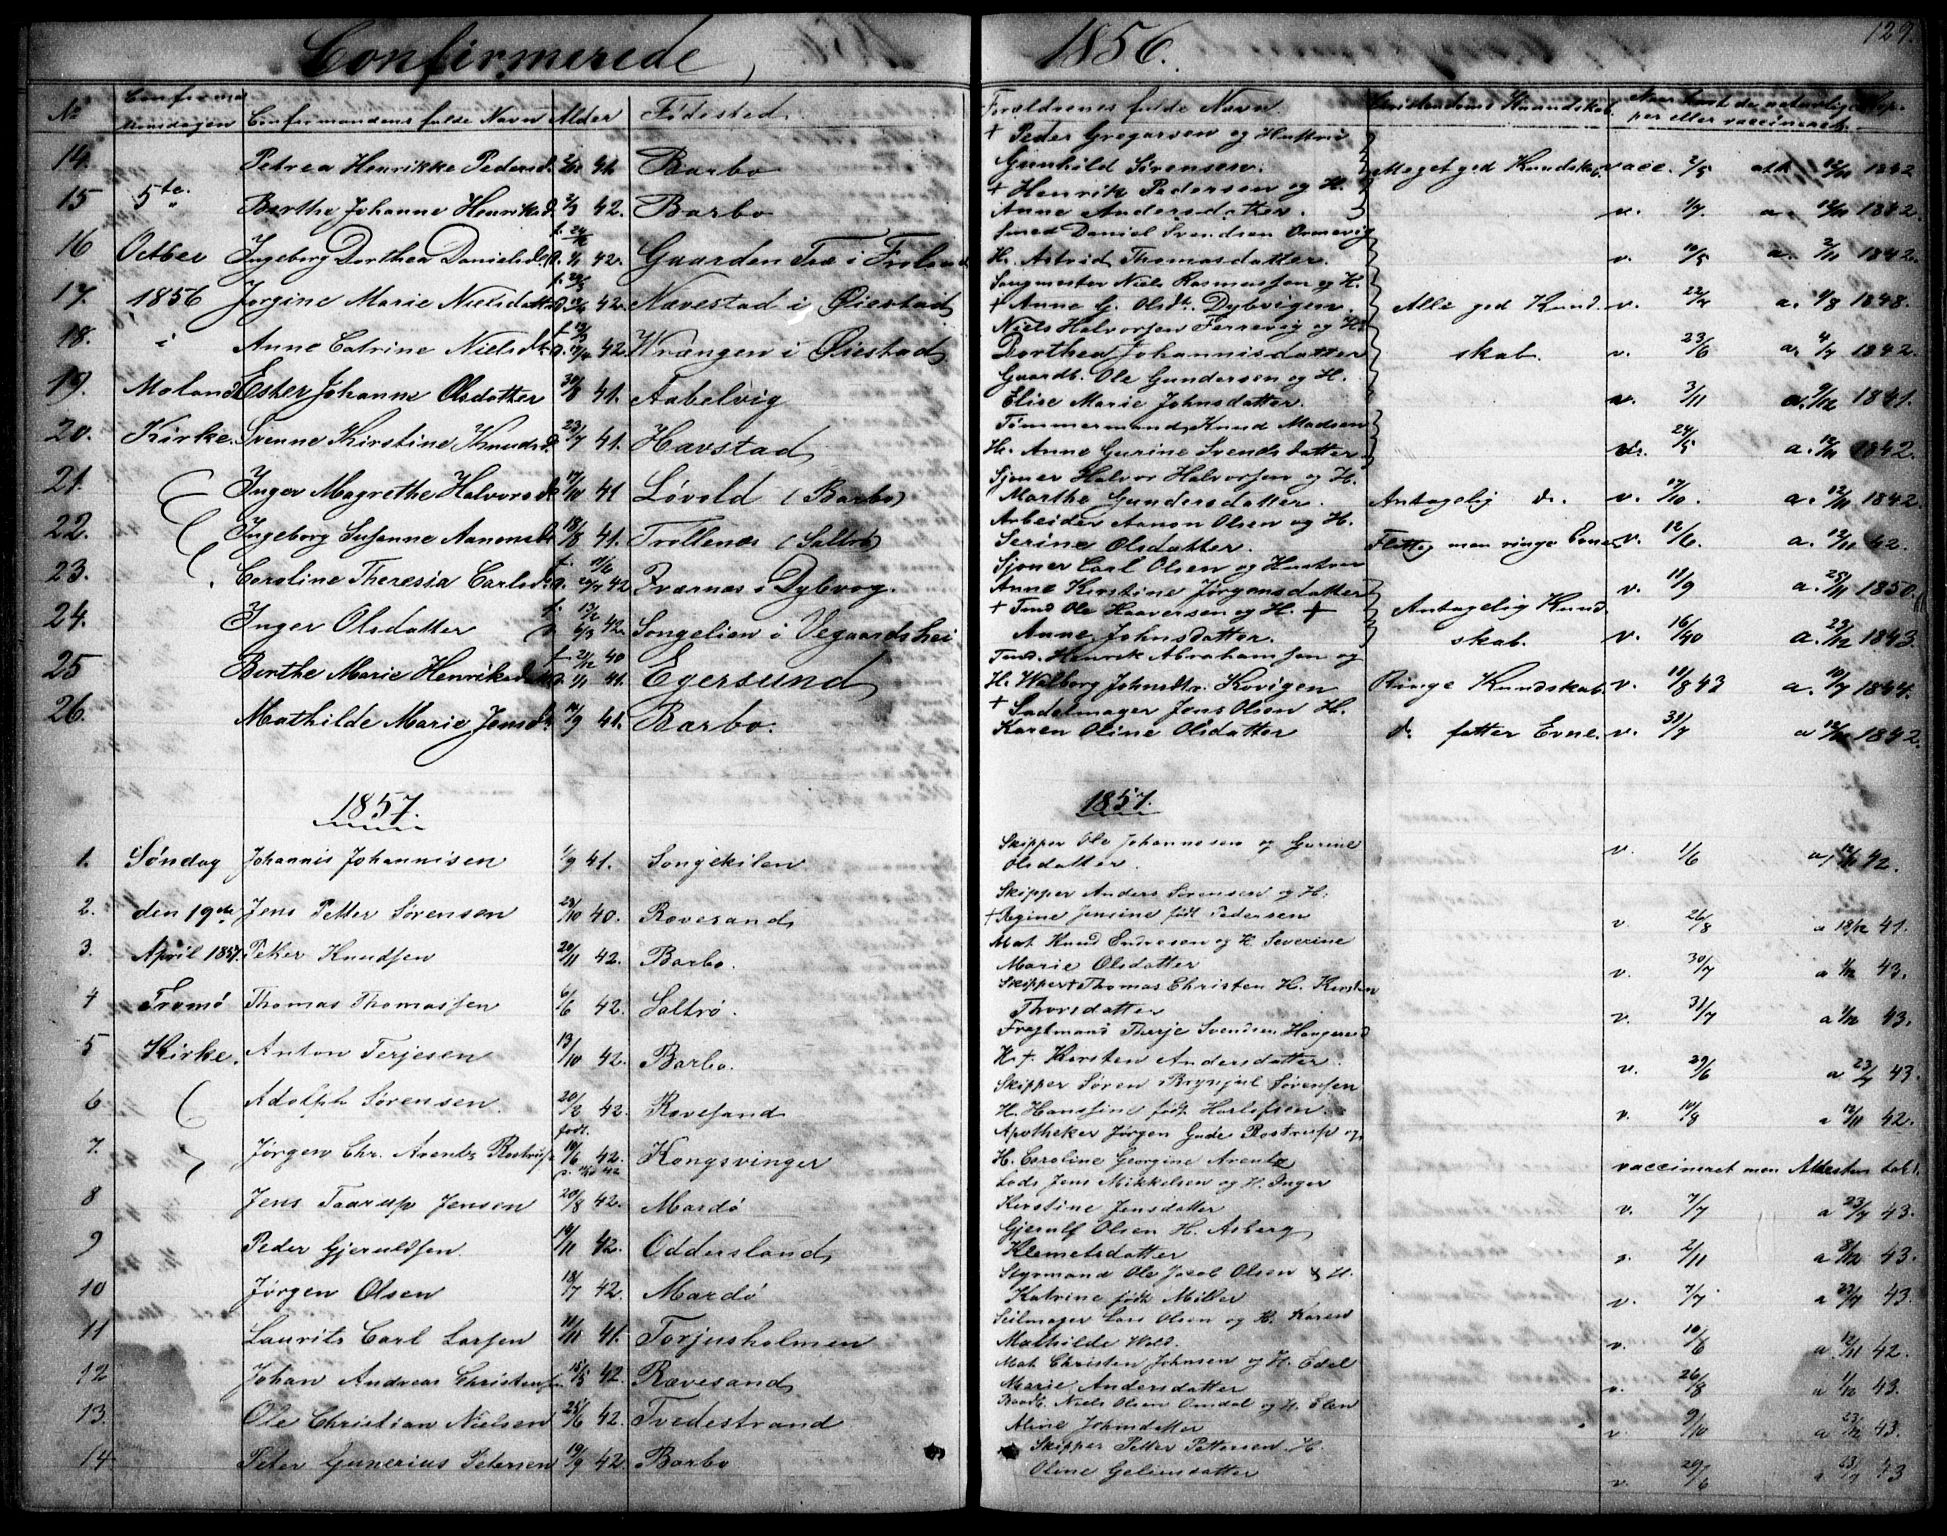 Confirmerede 1856.
129.
No Confirmationsdagen Confirmandens fulde Navn Alder Fødested Forældrenes fulde Navn Christendoms Kundskab. Naar havt de naturlige Kopper eller vaccineret.
† Peder Gregersen og Hustru
14. Petrea Henrikke Pedersd. 41. Barbo Gunhild Sørensen. Meget god Kundskab. vacc. 2/5 att. 12/11 1842
† Henrik Pedersen og H.
15 5te Berthe Johanne Henriksd. 2/3 42. Barbo Anne Andersdatter. v. 1/7 a. 12/11 1842.
Smed Daniel Svendsen
16 Octber Ingeborg Dorthea Danielsd. 42. Gaarden Træ i Froland H. Astrid Thomasdatter. v. 10/5 a. 2/11 1842.
Niels Rasmussen og H.
17. 1856 Jørgine Marie Nielsdatter 42. Nævestad i Øiestad † Anne G. Olsdt. Dybvigen. Alle god Kund v. 22/7 a. 1/8 1848.
Niels Halvorsen Ferrevig og H.
18. i Anne Catrine Nielsdt. 42. Vrængen i Øiestad Dorthea Johannisdatter skab. v. 23/6 a. 4/7 1842.
Gaardb. Ole Gundersen og H.
19. Moland Ester Johanne Olsdatter 30/8 41. Aabelvig Elise Marie Johnsdatter. v. 3/11 a. 9/12 1841.
Tømmermand Knud Madsen
20. Kirke. Svenne Kirstine Knudsd. 23/7 41. Havstad H. Anne Gurine Svendsdatter v. 24/5 a. 12/11 1842.
Sjøner Halvor Halvorsen og H.
21. Inger Magrethe Halvorsd. 17/10 41 Løvold (Barbo) Marthe Gundersdatter. Antagelig do. v. 17/10. a. 12/11 1842.
Arbeider Aanon Olsen og H.
22. Ingeborg Susanne Aanonsd. 18/8 41. Trollenæs (Saltrø) Serine Olsdatter. Flittig men ringe Evne v. 12/6. a. 12/11 42.
Sjøner Carl Olsen og Hustru
23. Caroline Theresia Carlsd. 42 i Dybvog. Anne Kirstine Jørgensdatter v. 11/9 a. 25/11 1850.
24. Inger Olsdatter f. 13/2 42. Songelien i Vegaardshei Anne Johnsdatter. Antagelig Kundskab. v. a. 23/12 1843.
Henrik Abrahamsen og
25 Berthe Marie Henriksd. f. 21/12 40 d. 1/1 41. Egersund H. Walborg Johnsdtr. Kovigen Ringe Kundskab. v. 11/8 43 a. 19/7 1844.
† Sadelmager Jens Olsen H.
26. Mathilde Marie Jensd. 41. Barbo. Karen Oline Olsdatter do. fatter Evne. v. 31/7 a 12/11 1842.
1857. 1857.
Skipper Ole Johannesen og Gurine
1. Søndag Johannis Johannisen 1/9 41. Songekilen Olsdatter. v. 1/6 a. 12/11 42.
Skipper Anders Sørensen og H.
2. den 19de Jens Petter Sørensen 23/10 40. Rævesand † Regine Jensine født Pedersen v. 26/8 a 18/12 41.
Mat. Knud Endresen og H Severine
3. April 1857. Peter Knudsen 20/11 42. Barbo. Marie Olsdatter v. 30/7 a 1/12 43.
Skipper † Thomas Christen H. Kirsten
4 Tromø Thomas Thomassen 6/6 42. Saltrø. Thorsdatter v. 31/7 a 1/12 43.
Fragtmand Therje Svendsen
5 Kirke. Anton Terjesen 13/10 42. Barbo. H. †. Kirsten Andersdatter. v. 29/6 a 23/7 43.
Skipper Søren Brynjul Sørensen
6 Adolph Sørensen. 20/2 42. Rævesand H. Hansine født v. 10/8 a 12/11 42.
født. Apotheker Jørgen Gude Rostrup og
7. Jørgen Chr. Arentz Rostrup 19/6 42. Kongsvinger H. Caroline Georgine Arentz vaccineret men Attesten
Lods Jens Mikkelsen og H. Inger
8 Jens Taarup Jensen 20/8 42. Mardø Kirstine Jensdatter v. 7/7 a 23/7 43.
Gjerulf Olsen H. Asberg
9 Peder Gjeruldsen 42. Oddersland Klemetsdatter v. 2/11 a 8/12 43.
Styrmand Ole Jacob Olsen & H.
10 Jørgen Olsen 18/7 42. Mardø Katrine født Miller v. 7/7 a 23/7 43.
Seilmager Lars Olsen og H. Karen
11 Laurits Carl Larsen 41. Torjusholmen Mathilde Wold. v. 10/8 a. 12/11 42.
Mat Christen Johnsen og H. Edel
12 Johan Andreas Christensen 15/5 42. Rævesand Marie Andersdatter v. 26/8 a 1/12 43.
Niels Olsen Omdal og H. Elen
13. Ole Christian Nielsen 42. Tvedestrand Aline Johnsdatter v 9/10 a 23/12 43.
Skipper Petter Pettersen H.
14 Peter Gunerius Petersen 19/9 42. Barbo Oline v. 29/6 43